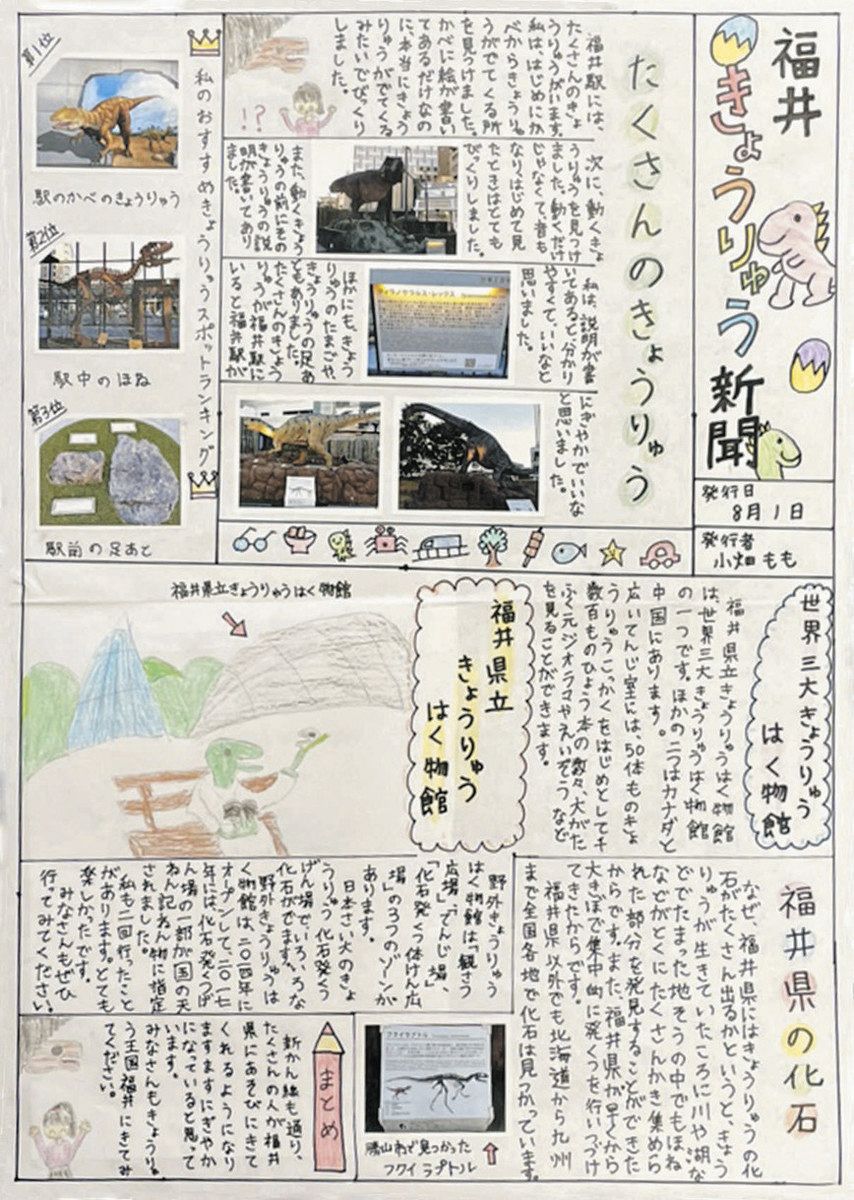 福井
きょうりゅう
新聞
発行日
8月1日
発行者
小畑もも
たくさんのきょうりゅう
福井駅には、
たくさんのきょ
うりゅうがいます。
私は、はじめにか
べからきょうりゅ
うがでてくる所
を見つけました。
かべに絵が書い
てあるだけなの
に、本当にきょう
りゅうがでてくる
みたいでびっくり
しました。
!?
次に、動くきょ
うりゅうを見つけ
ました。動くだけ
じゃなくて、音も
なり、はじめて見
たときはとても
びっくりしました。
また、動くきょう
りゅうの前にその
きょうりゅうの説
明が書いてあり
ました。
私は、説明が書
いてあると、分かり
やすくて、いいなと
思いました。
ティラノサウルス・レックス
ほかにも、きょう
りゅうのたまごや、
きょうりゅうの足あ
ともありました。
たくさんのきょう
りゅうが福井駅に
いると福井駅が
にぎやかでいいな
と思いました。
私のおすすめきょうりゅうスポットランキング
第1位
駅のかべのきょうりゅう
第2位
駅中のほね
第3位
駅前の足あと
世界三大きょうりゅう
はく物館
福井県立きょうりゅうはく物館
は、世界三大きょうりゅうはく物館
の一つです。ほかの二つはカナダと
中国にあります。
広いてんじ室には、50体ものきょ
うりゅうこっかくをはじめとして千
数百ものひょう本の数々、大がた
ふく元ジオラマやえいぞうなど
を見ることができます。
福井県立
きょうりゅう
はく物館
福井県立きょうりゅうはく物館
福井県の化石
なぜ、福井県にはきょうりゅうの化
石がたくさん出るかというと、きょう
りゅうが生きていたころに川や湖な
どでたまった地そうの中でもほね
などがとくにたくさんかき集めら
れた部分を発見することができた
からです。また、福井県が早くから
大きぼで集中的に発くつを行いつづけ
てきたからです。
福井県以外でも北海道から九州
まで全国各地で化石は見つかっています。
野外きょうりゅう
はく物館は「観さつ
広場」「てんじ場」、
「化石発くつ体けん広
場」の3つのゾーンが
あります。
日本さい大のきょ
うりゅう化石発くつ
げん場で、いろいろな
化石がでます。
野外きょうりゅうは
く物館は、二〇一四年に
オープンして、二〇一七
年には、化石発くつげ
ん場の一部が国の天
ねん記ねん物に指定
されました。
私も二回行ったこと
があります。とても
楽しかったです。
みなさんもぜひ
行ってみてください。
フクイラプトル
勝山市で見つかった
フクイラプトル
まとめ
新かん線も通り、
たくさんの人が福井
県にあそびにきて
くれるようになり
ますますにぎやか
になっていると思って
います。
みなさんもきょうりゅ
う王国福井にきてみ
てください。